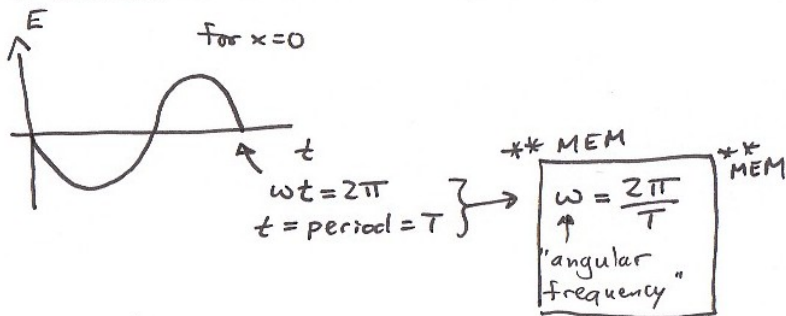 E
for x=0
t
ωt = 2π
t = period = T
** MEM
** MEM
ω = 2π/T
"angular
frequency"